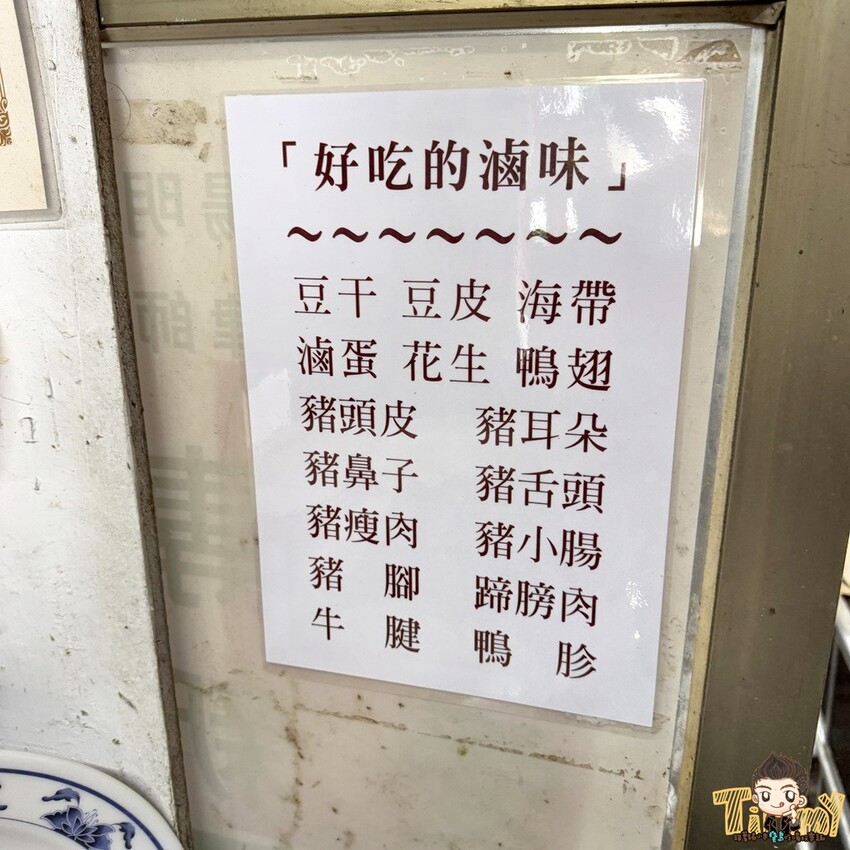 「好吃的滷味」
～～～～～～～
豆干 豆皮 海帶
滷蛋 花生 鴨翅
豬頭皮 豬耳朵
豬鼻子 豬舌頭
豬瘦肉 豬小腸
豬 腳 蹄膀肉
牛 腱 鴨 胗